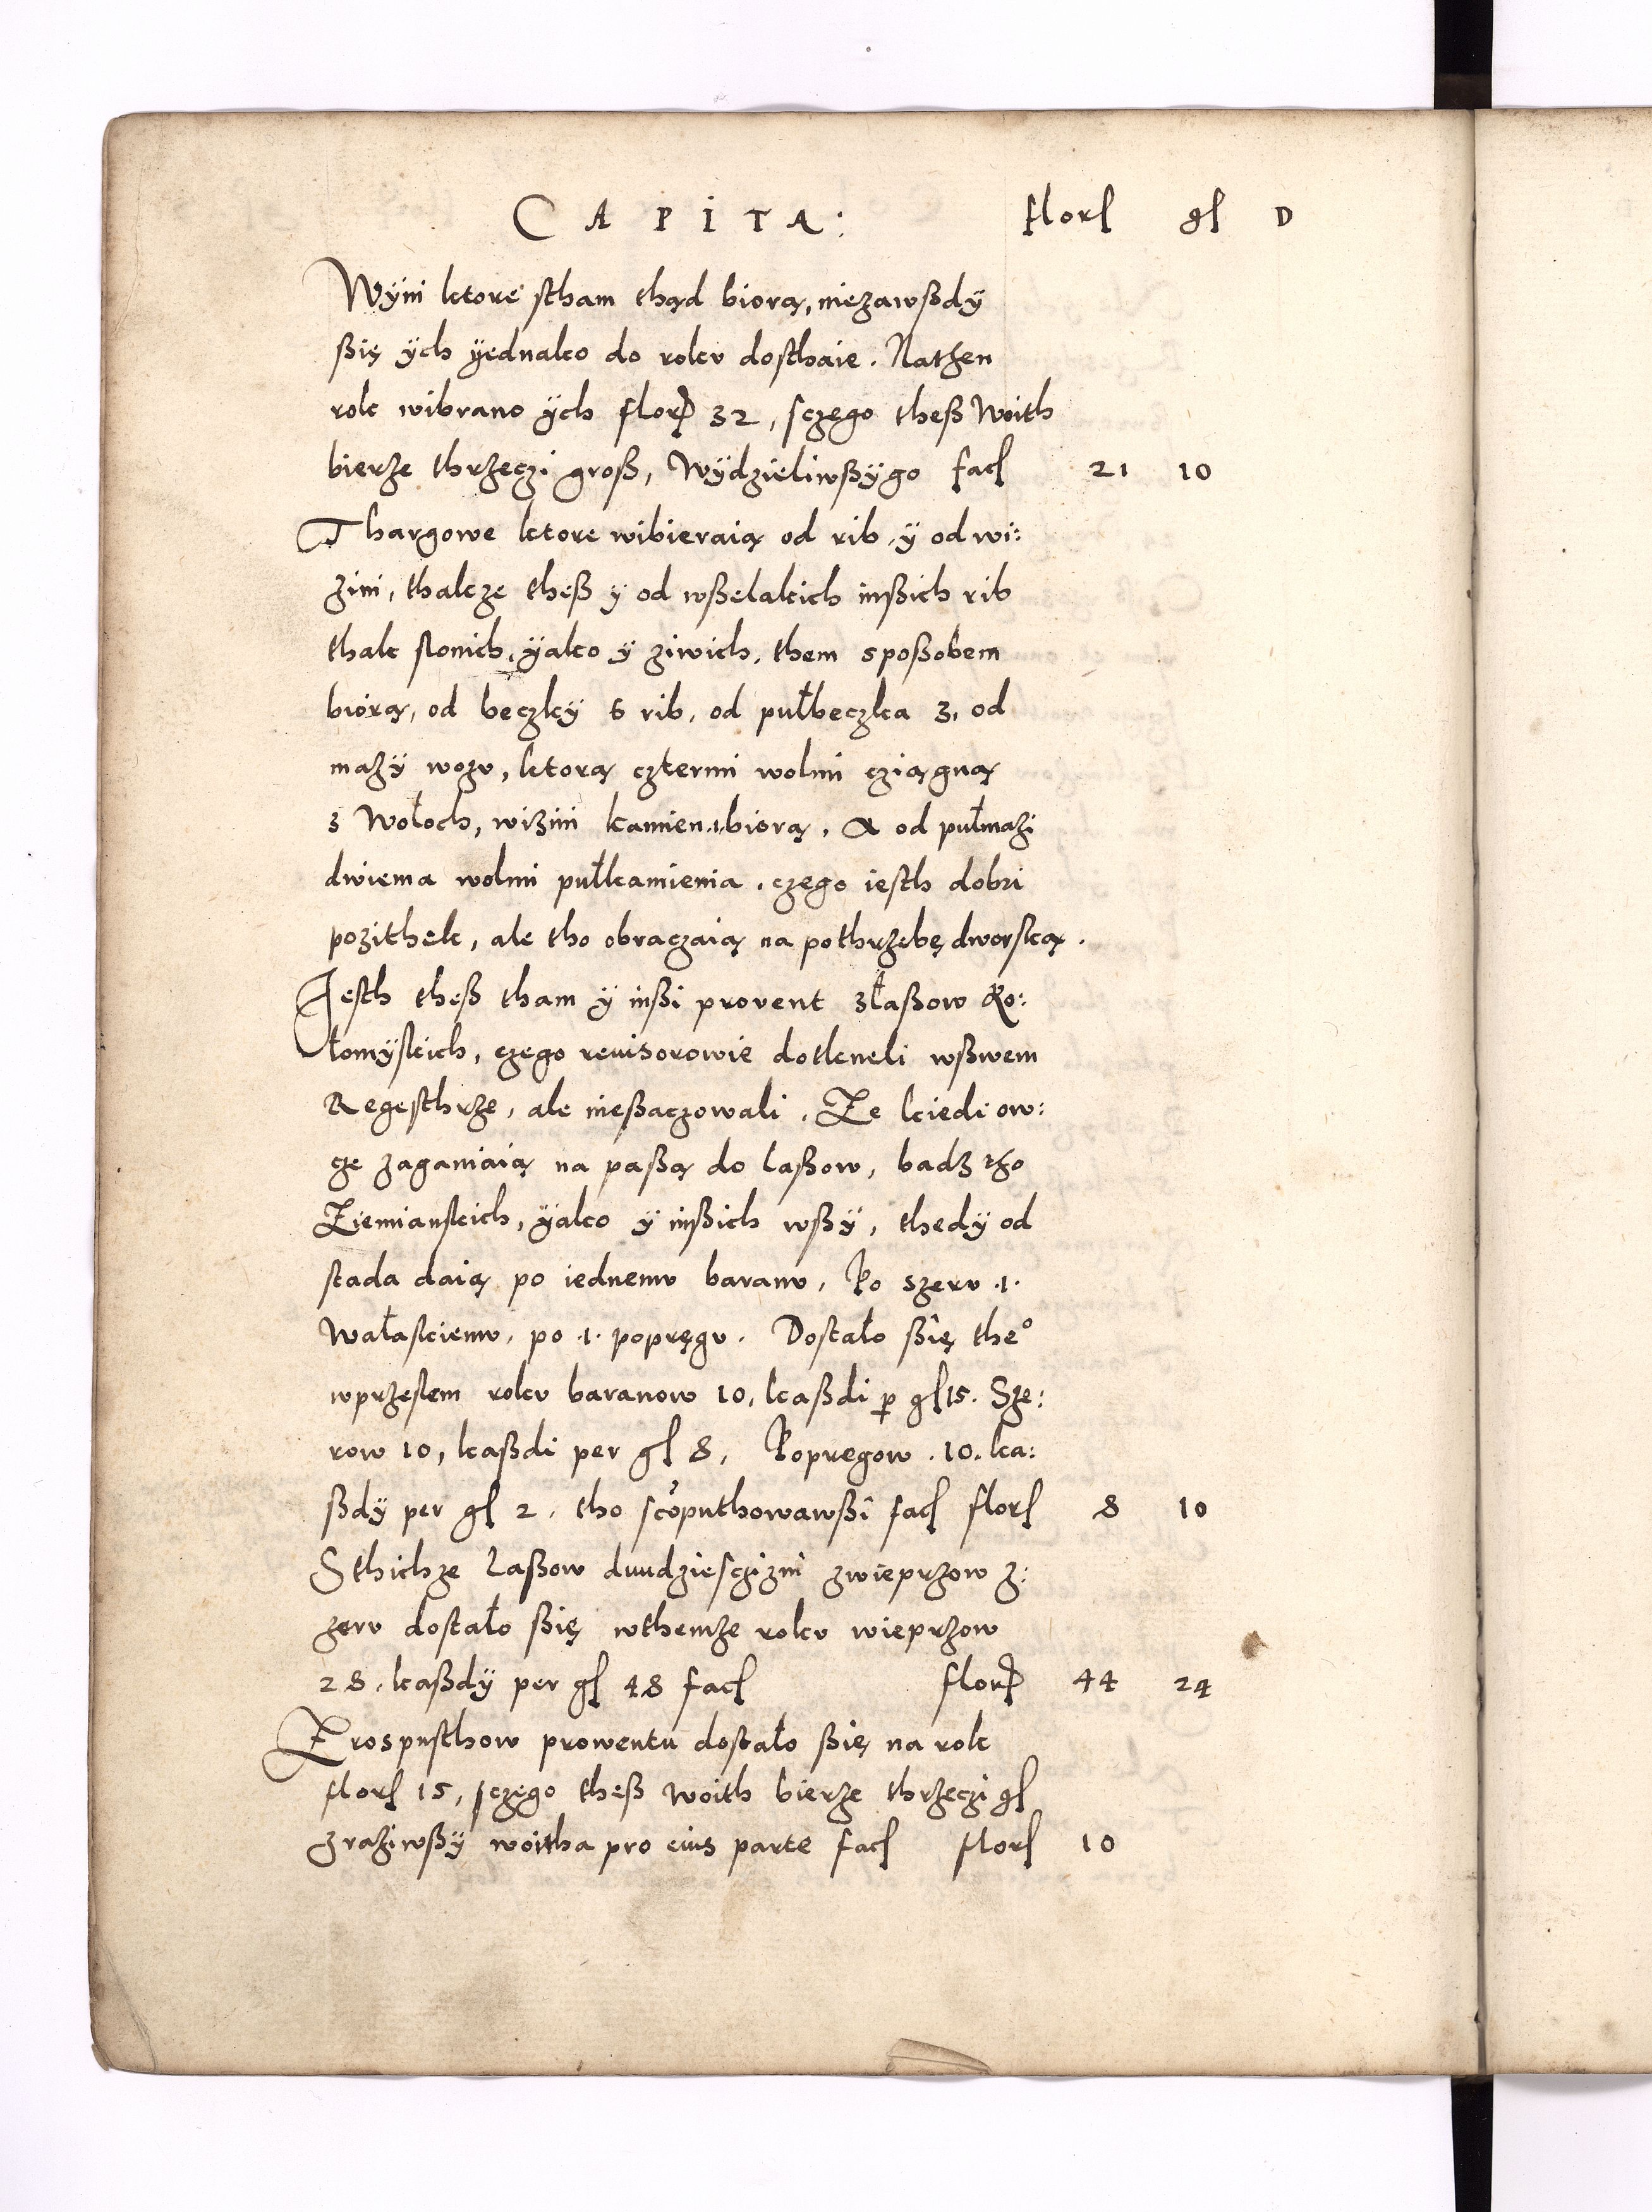 CAPITA: florſ gſ D
Wÿni ktore ſtham thąd biorą, niezawßdÿ
ßię ÿch ÿednako do rokv doſthaie. Nathen
rok wibrano ÿch flor 32, ſczego theß Woith
bierże thrżeczi groß, Wÿdzieliwßÿgo facſ 21 10
Thargowe ktore wibieraią od rib, ÿ od wi:
zini, thakze theß y od wßelakich inßich rib
thak ſlonich, ÿako ÿ ziwich, them spoßobem
biorą, od beczkÿ 6 rib, od pułbeczka 3, od
mażÿ wozv, ktorą cztermi wolmi cziągną
3 Wołoch, wizini kamien .1. biorą, A od pułmażi
dwiema wolmi pułkamienia, czego ieſth dobri
pozithek, ale tho obraczaią na pothrzebę dworſką.
Jeſth theß tham ÿ inßi provent złaßow Ko:
łomÿſkich, czego reuisorowie dotkneli wßwem
Regeſthrże, ale nießaczowali. Ze kiedi ow:
cze zaganiaią na paßą do laßow, badz tho
Ziemianſkich, ÿako ÿ inßich wßÿ, thedÿ od
stada daią po iednemv baranv, Po szerv .1.
Wałaſkiemv, po .1. popręgv. Dostało ßię the°
wprżeſlem rokv baranow 10, kaßdi ꝑ gſ 15. Sze:
row 10, kaßdi per gſ 8, Popregow .10. ka:
ßdÿ per gſ 2, tho ſcoputhowawßi facſ florſ 8 10
Sthichze laßow duudzieſczizni zwieprzow z:
zerv dostało ßię wthemże rokv wieprzow
28, kaßdÿ per gſ 48 facſ flor 44 24
Zrospuſthow prowentu dostało ßię na rok
florſ 15, ſczego theß woith bierże thrżeczi gſ
zrażiwßÿ woitha pro eius parte facſ florſ 10